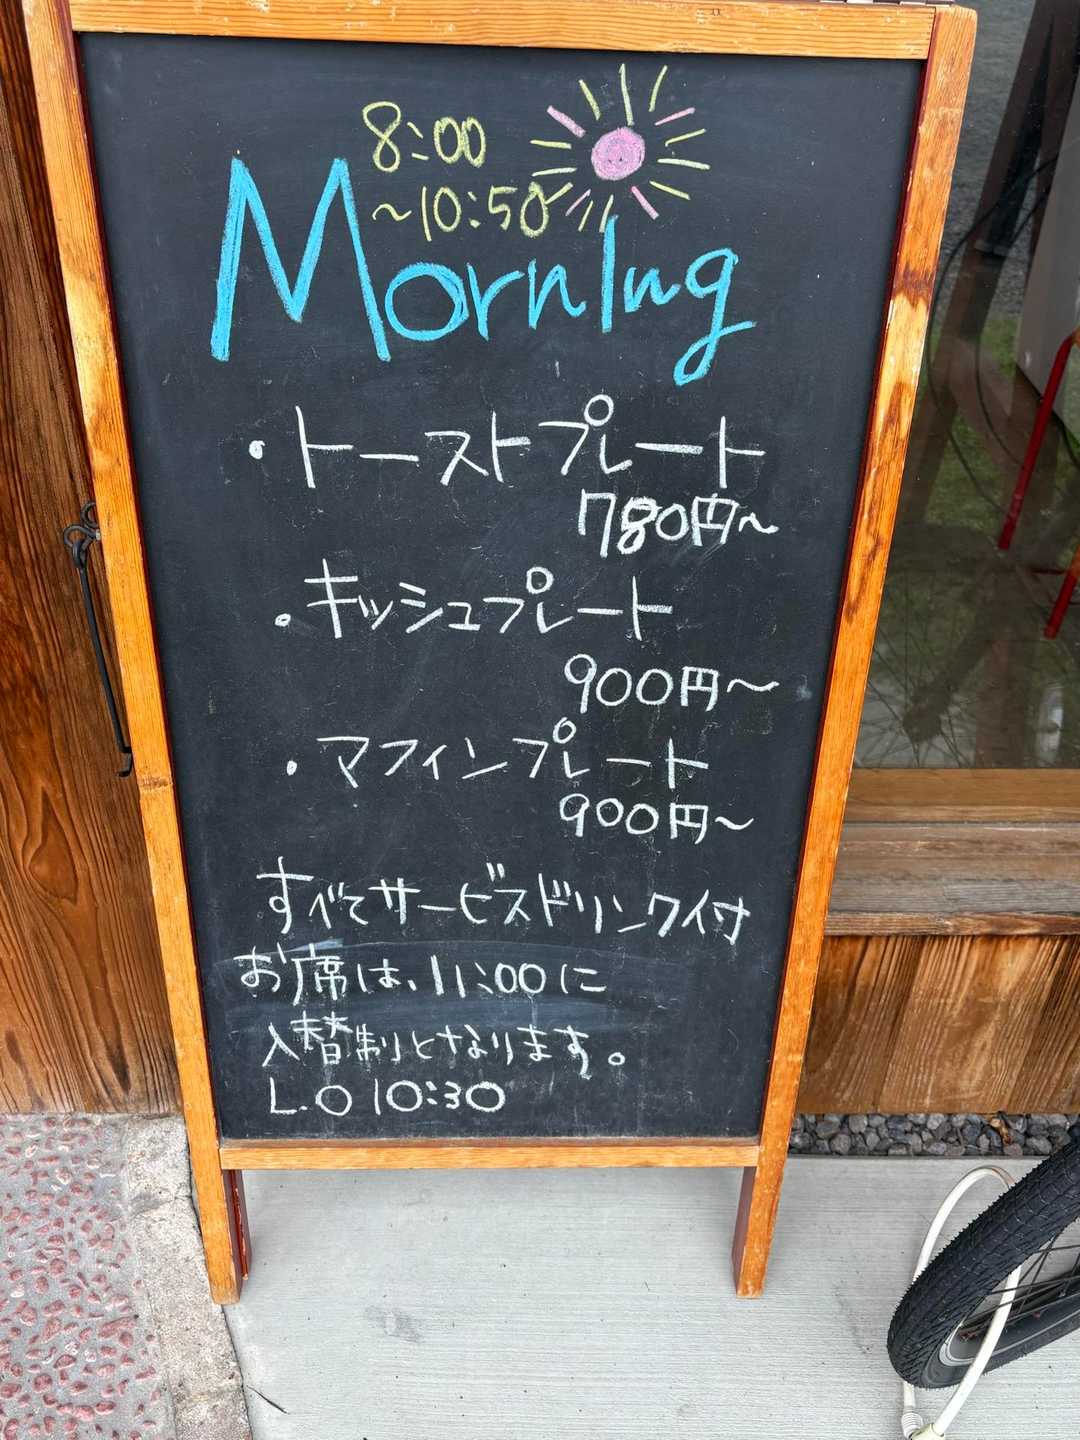 8:00
~10:50
Morning
・トーストプレート
780円~
・キッシュプレート
900円~
・マフィンプレート
900円~
すべてサービスドリンク付
お席は、11:00に
入替制となります。
L.O 10:30